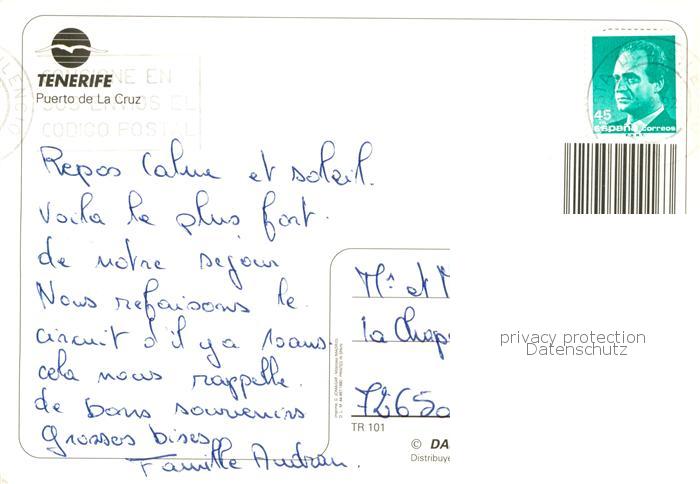 TENERIFE
Puerto de La Cruz
CONSIGNE EN
SUS ENVIOS EL
CODIGO POSTAL
45
españa correos
Repos Calme et soleil.
Voila le plus fort.
de notre sejour
Nous refaisons le
circuit d'il y a 10 ans.
cela nous rappelle.
de bons souvenirs
Grosses bises
Famille Audran.
Mr et M
la Chap
72650
TR 101
© DA
Distribuye
privacy protection
Datenschutz